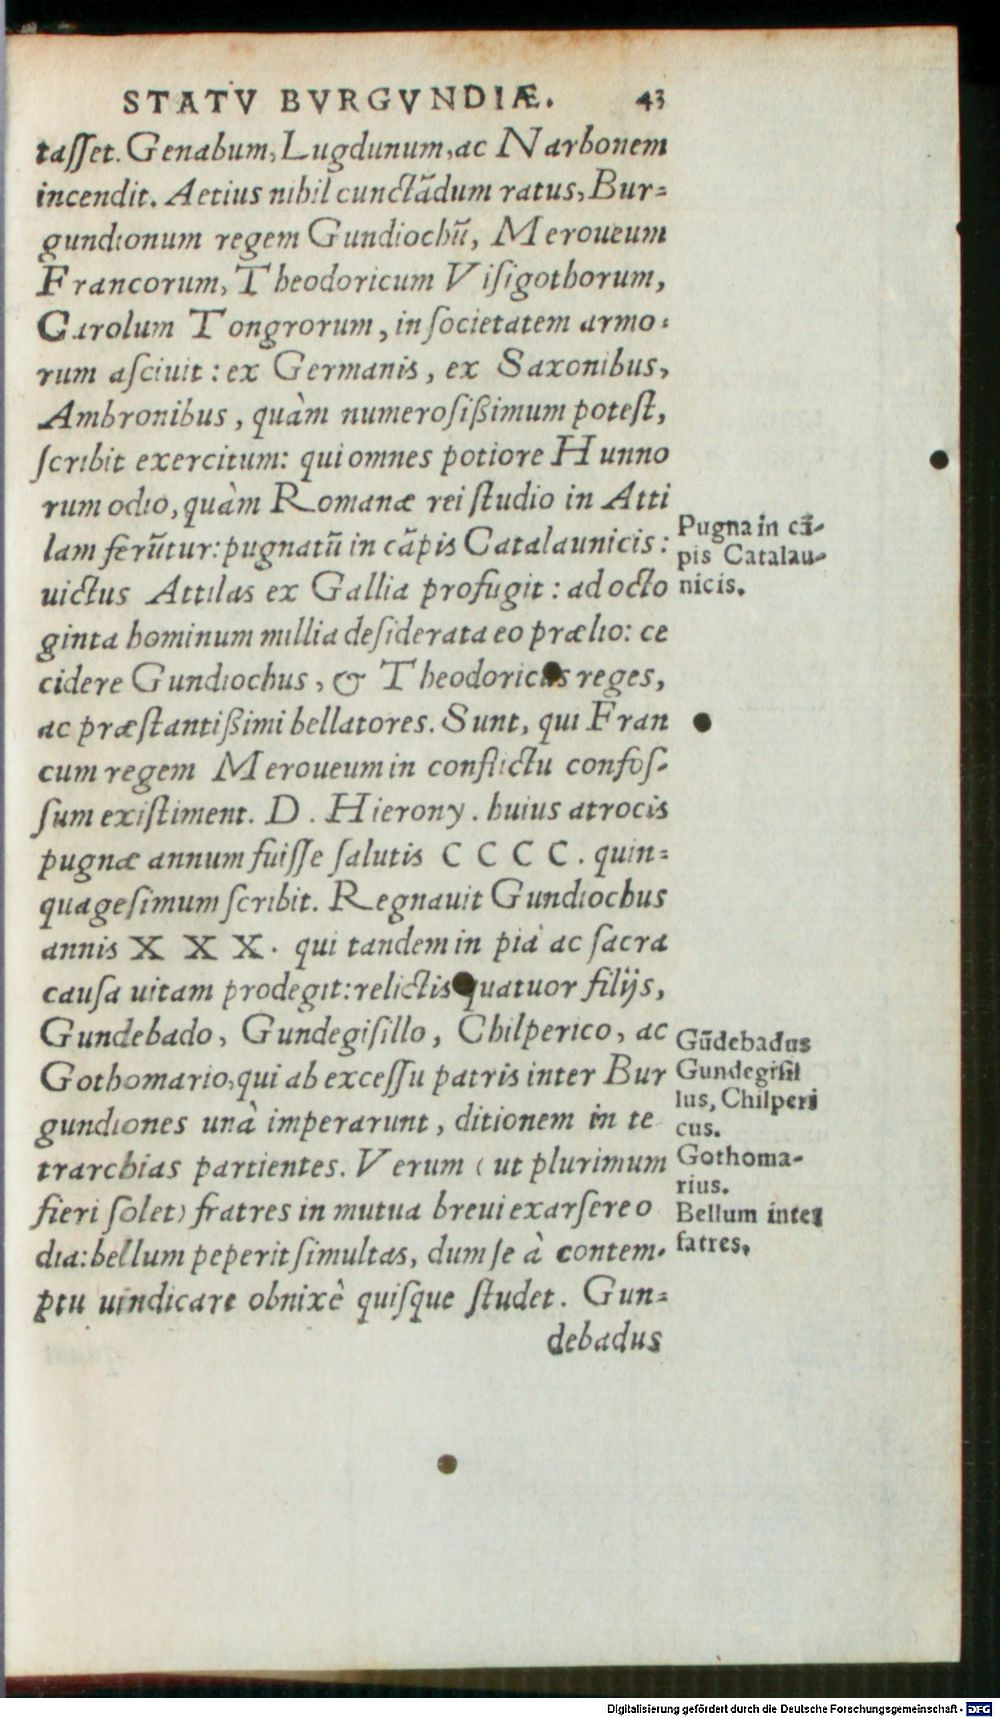 STATV BVRGVNDIÆ. 43
taſſet. Genabum, Lugdunum, ac Narbonem
incendit. Aetius nihil cunctādum ratus, Bur=
gundionum regem Gundiochū, Meroueum
Francorum, Theodoricum Viſigothorum,
Carolum Tongrorum, in ſocietatem armo=
rum aſciuit: ex Germanis, ex Saxonibus,
Ambronibus, quàm numeroſißimum poteſt,
ſcribit exercitum: qui omnes potiore Hunno
rum odio, quàm Romanæ rei ſtudio in Atti
lam ferūtur: pugnatū in cāpis Catalaunicis:
uictus Attilas ex Gallia profugit: ad octo
ginta hominum millia deſiderata eo prælio: ce
cidere Gundiochus, & Theodoricus reges,
ac præſtantißimi bellatores. Sunt, qui Fran
cum regem Meroueum in conflictu confoſ-
ſum exiſtiment. D. Hierony. huius atrocis
pugnæ annum fuiſſe ſalutis CCCC. quin=
quageſimum ſcribit. Regnauit Gundiochus
annis XXX. qui tandem in pia ac ſacra
cauſa uitam prodegit: relictis quatuor filijs,
Gundebado, Gundegiſillo, Chilperico, ac
Gothomario, qui ab exceſſu patris inter Bur
gundiones unà imperarunt, ditionem in te
trarchias partientes. Verum (ut plurimum
fieri ſolet) fratres in mutua breui exarſere o
dia: bellum peperit ſimultas, dum ſe à contem-
ptu uindicare obnixè quiſque ſtudet. Gun=
debadus
Pugna in cā-
pis Catalau-
nicis.
Gūdebadus
Gundegiſil
lus, Chilperi
cus.
Gothoma-
rius.
Bellum inter
fatres.
Digitalisierung gefördert durch die Deutsche Forschungsgemeinschaft - DFG